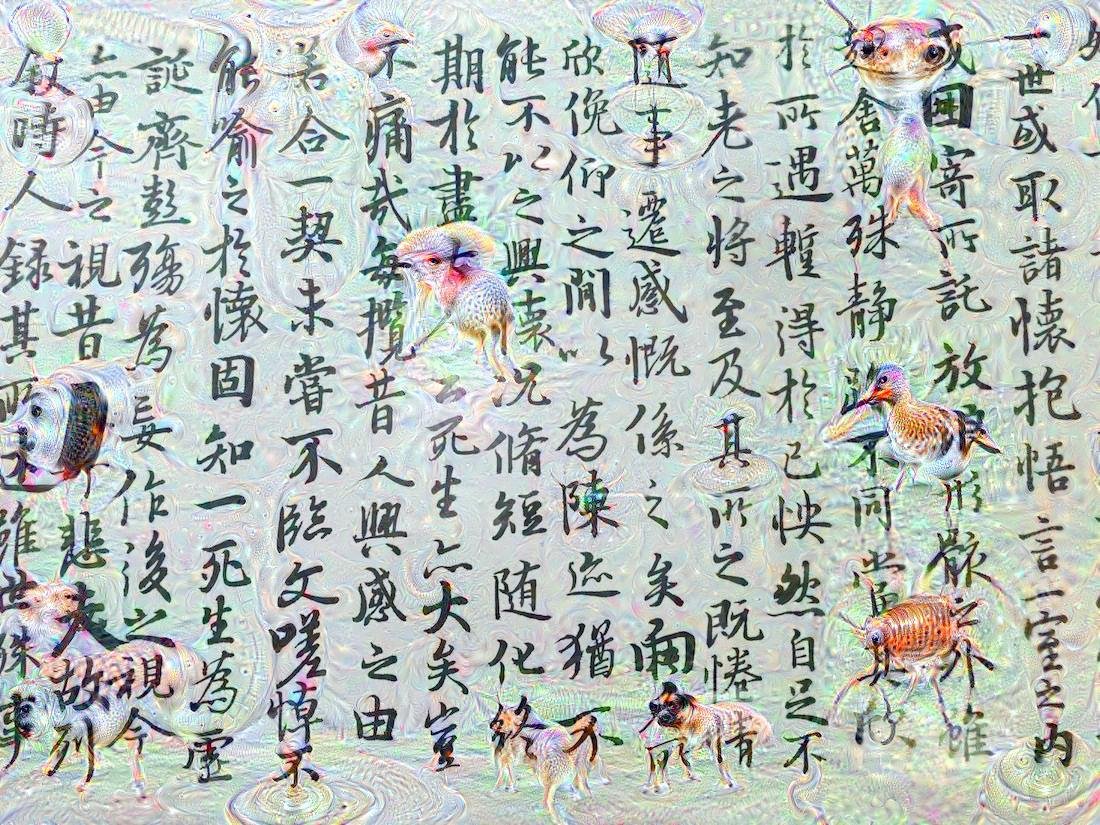 世或取諸懷抱悟言一室之內
或因寄所託放形骸外雖
舍萬殊静不同當其欣
於所遇蹔得於己怏然自足不
知老之將至及其所之既惓情
事遷感慨係之矣
欣俛仰之閒以為陳迹猶不
能不以之興懷況脩短随化
期於盡死生亦大矣豈
不痛哉每攬昔人興感之由
若合一契未嘗不臨文嗟悼不
能喻之於懷固知一死生為虛
誕齊彭殤為妄作後之視今
亦由今之視昔悲夫故列
叙時人録其所述雖世殊事